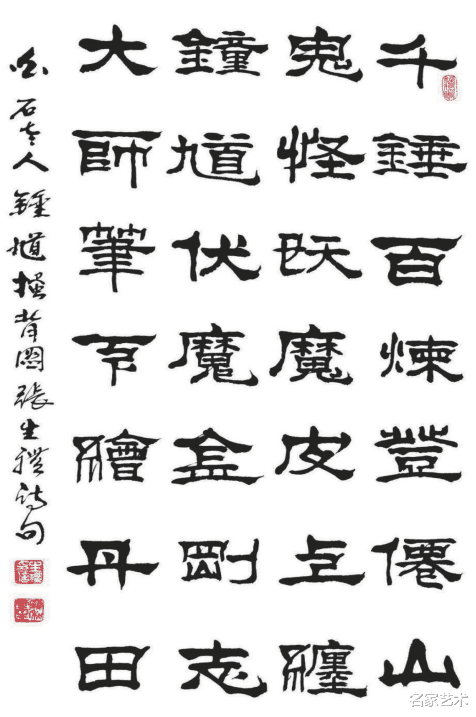 千錘百煉登僊山
鬼怪魔皮上纏
鐘馗伏魔金剛志
大師筆下繪丹田
石老人鍾馗搔背圖張生禮詩句
名家艺术